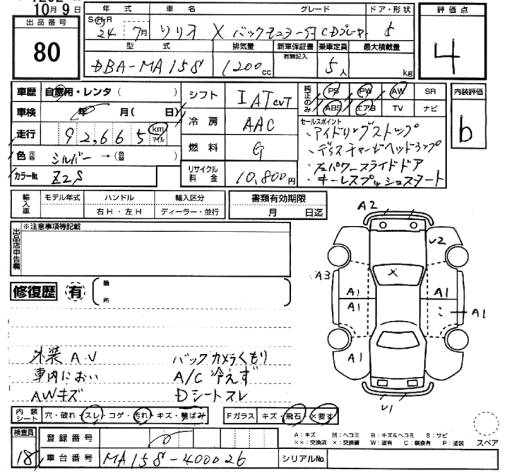 10月9日
年式 車名 グレード ドア・形状
出品番号
80
24年 7月 ソリオ X バックモニター付CDプレーヤー 5
評価点
4
型式 排気量 新車保証書 乗車定員 最大積載量
有・無 記録簿
DBA-MA15S 1200cc 5人 kg
車歴 自家用・レンタ( )
車検 年 月( 日)
走行 92,665 km マイル
色 元色 シルバー→(色替)
カラーNo. Z2S
シフト IATCVT
冷房 AAC
燃料 G
リサイクル料金 10,800円
純正のみ PS PW AW SR
ABS エアB TV ナビ
内装評価
b
セールスポイント
・アイドリングストップ
・ディスチャージヘッドランプ
・左パワースライドドア
・キーレスプッシュスタート
輸入車 モデル年式 ハンドル 輸入区分
右H・左H ディーラー・並行
書類有効期限
月 日迄
出品店申告欄
※注意事項等記載
修復歴 有 箇所
A2
U2
A3
A1 A1
A1
A1
U1
外装A.U バックカメラくもり
車内におい A/C冷えず
AWキズ Dシートスレ
内装シート 穴・破れ・スレ・コゲ・汚れ・キズ・黄ばみ
Fガラス キズ・飛石・×要す
A:キズ U:ヘコミ B:キズ&ヘコミ S:サビ
スペア
検査員
18
登録番号
車台番号 MA15S-400026
シリアルNo.